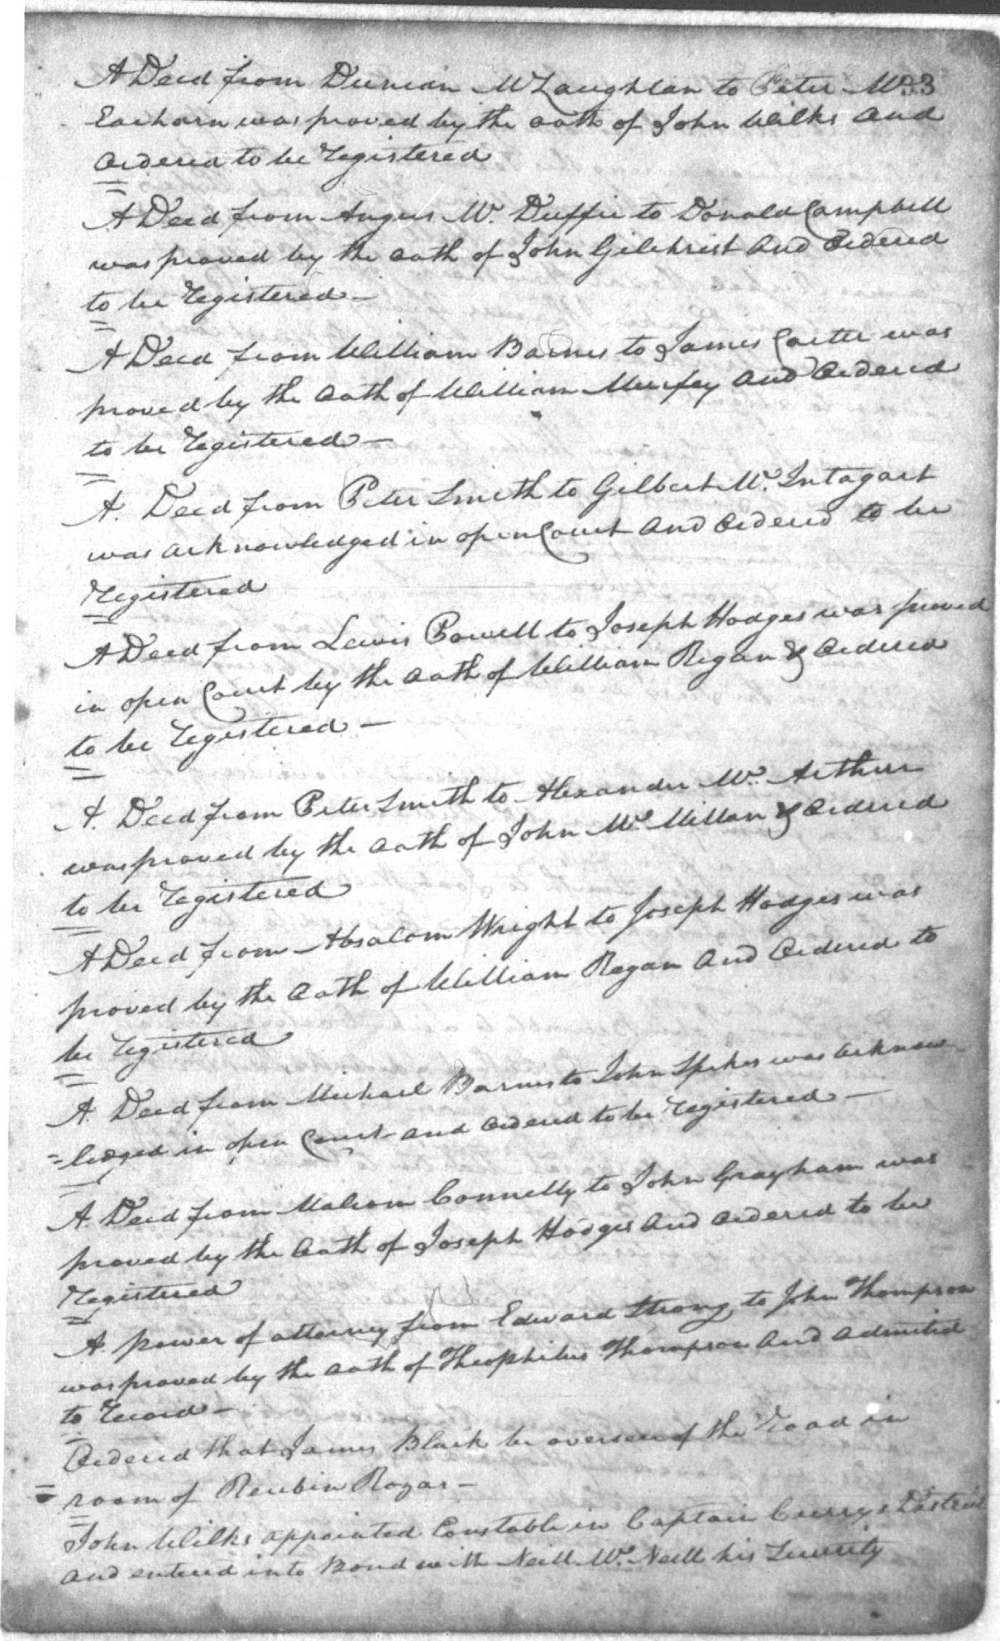 A Deed from Duncan McLaughlan to Peter Mc 33
Eachorn was proved by the oath of John Wilks and
ordered to be registered
A Deed from Angus Mc. Duffie to Donald Campbell
was proved by the oath of John Gilchrist and ordered
to be registered —
A Deed from William Barnes to James Carter was
proved by the oath of William Murfey and ordered
to be registered —
A. Deed from Peter Smith to Gilbert Mc. Intagart
was acknowledged in open Court and ordered to be
registered
A Deed from Lewis Powell to Joseph Hodges was proved
in open Court by the oath of William Regan & ordered
to be registered —
A. Deed from Peter Smith to Alexander Mc. Arthur
was proved by the oath of John Mc Millan & ordered
to be registered
A Deed from Absalom Wright to Joseph Hodges was
proved by the oath of William Regan and ordered to
be registered
A. Deed from Michael Barnes to John Spikes was acknow
=ledged in open Court and ordered to be registered —
A. Deed from Malcom Connelly to John Grayham was
proved by the oath of Joseph Hodges and ordered to be
registered
A. power of attorney from Edward Strong to John Thompson
was proved by the oath of Theophilus Thompson and admitted
to record —
Ordered that James Black be overseer of the road in
room of Reubin Rogar —
John Wilks appointed Constable in Captain Currys District
and entered into Bond with Neill Mc. Neill his Security